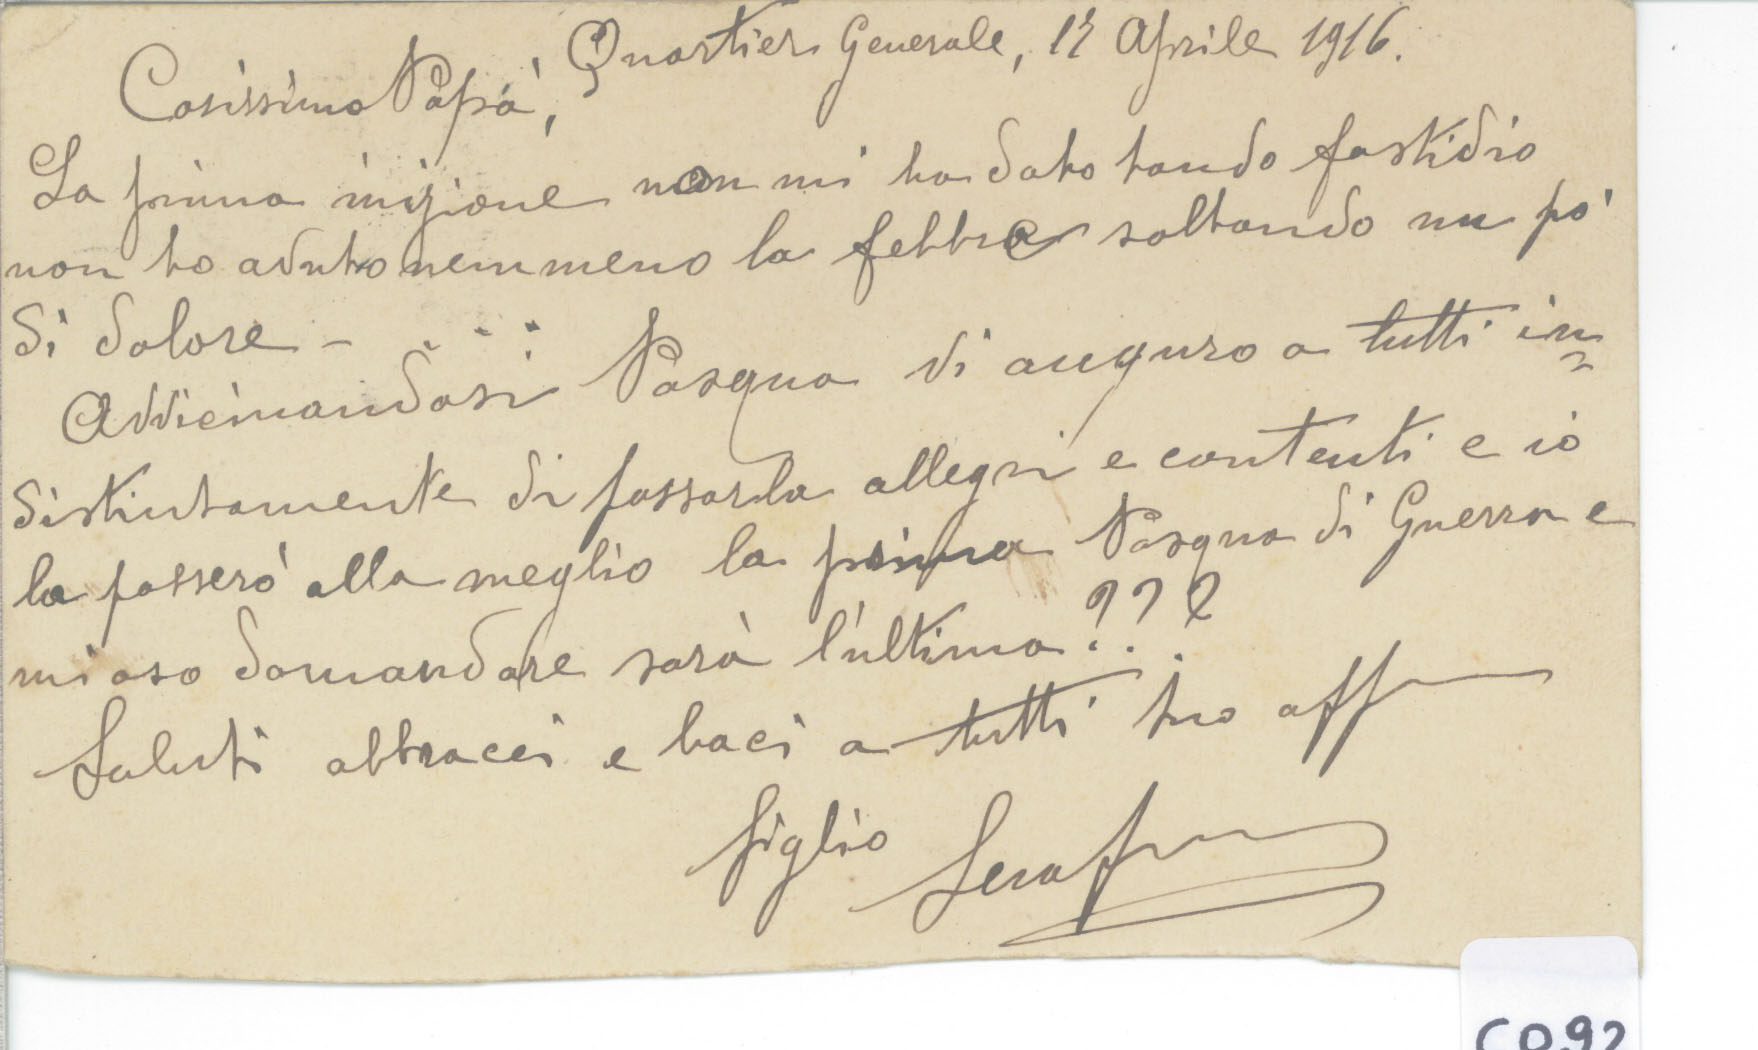 Quartier Generale, 12 Aprile 1916.
Carissimo Papà,
La prima inizione non mi ha dato tando fastidio
non ho avuto nemmeno la febbre soltando un pò
di dolore -
Avvicinandosi Pasqua vi auguro a tutti in=
distintamente di passarla allegri e contenti e io
la passerò alla meglio la prima Pasqua di Guerra e
mi oso domandare sarà l'ultima???
Saluti abbracci e baci a tutti tuo aff
figlio Seraf